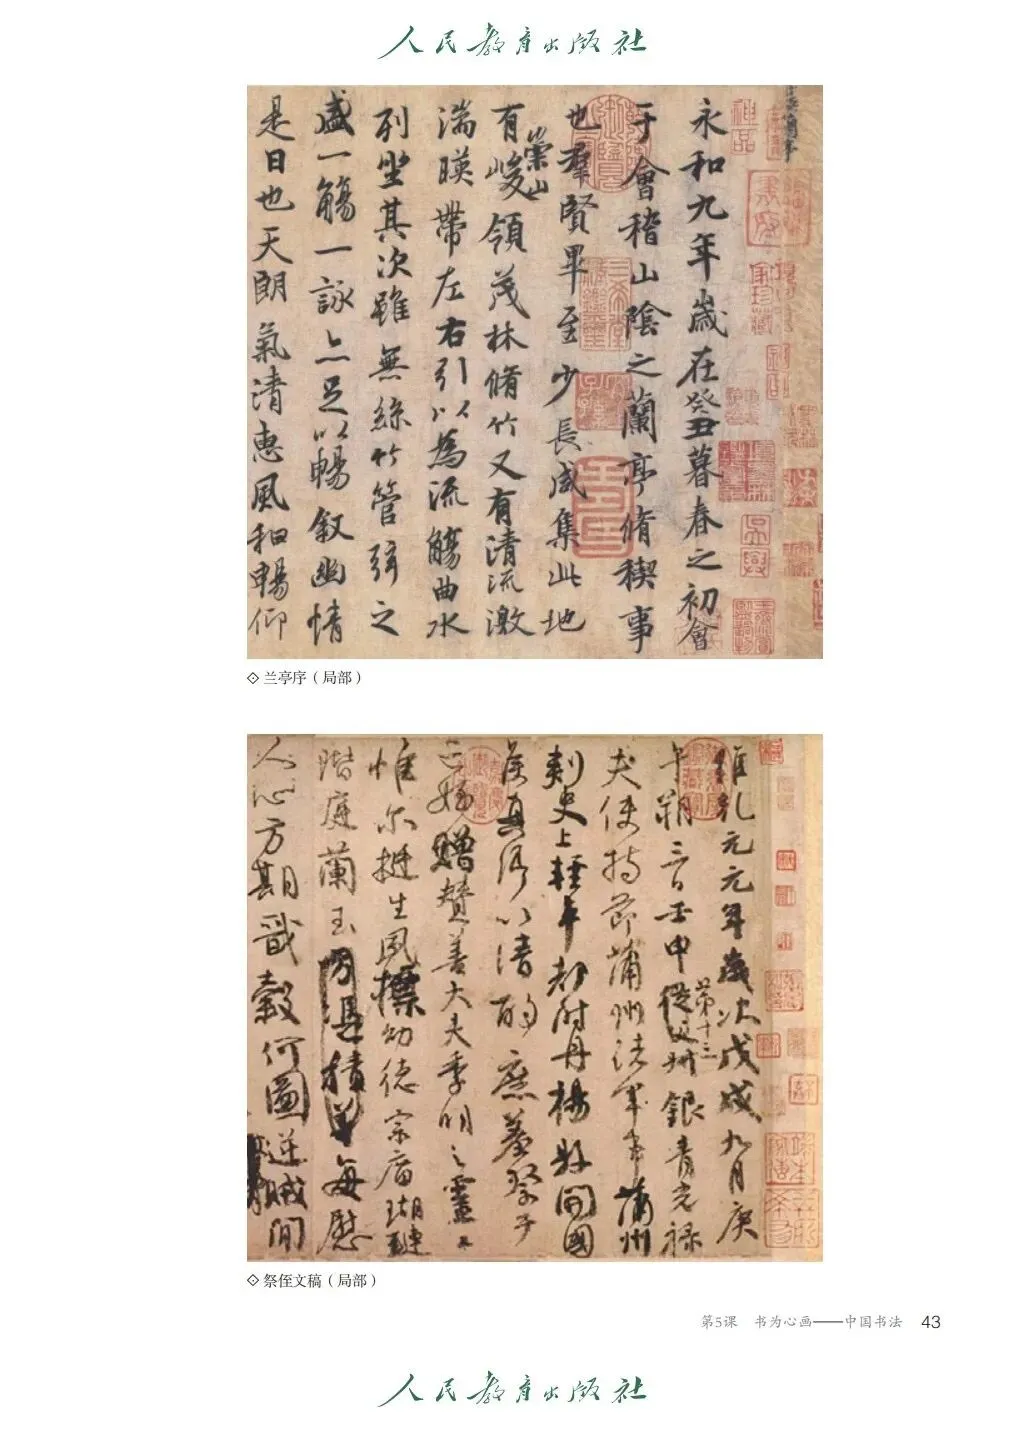 人民教育出版社
永和九年歲在癸丑暮春之初會
于會稽山陰之蘭亭脩稧事
也羣賢畢至少長咸集此地
有崇山峻領茂林脩竹又有清流激
湍暎帶左右引以為流觴曲水
列坐其次雖無絲竹管弦之
盛一觴一詠亦足以暢叙幽情
是日也天朗氣清惠風和暢仰
兰亭序（局部）
維乾元元年歲次戊戌九月庚
午朔三日壬申第十三從父
銀青光祿
夫使持節蒲州諸軍事蒲州
刺史上輕車都尉丹楊縣開國
侯真卿以清酌庶羞祭于
亡姪贈贊善大夫季明之靈
惟尔挺生夙標幼德宗廟瑚璉
階庭蘭玉每慰
人心方期戩穀何圖逆賊間
祭侄文稿（局部）
第5课 书为心画——中国书法 43
人民教育出版社